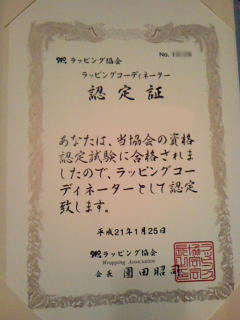 ラッピング協会
No. 1
ラッピングコーディネーター
認定証
あなたは、当協会の資格
認定試験に合格されま
したので、ラッピングコー
ディネーターとして認定
致します。
平成21年1月25日
ラッピング協会
Wrapping Association
会長 園田昭